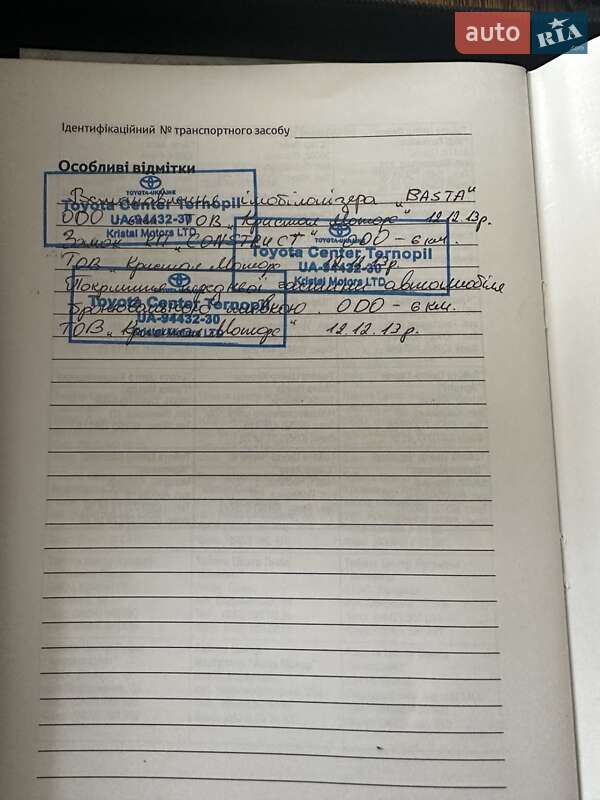 auto RIA .com
Ідентифікаційний № транспортного засобу
Особливі відмітки
Встановлення імобілайзера „BASTA"
ОDО 6 км. ТОВ „Кристал Моторс" 12.12.13р.
Замок КП „CONSTRUCT" ОDО – 6 км.
ТОВ „Кристал Моторс 12.12.13р.
Покриття передньої частини автомобіля
плівкою. ОDО – 6 км.
ТОВ „Кристал Моторс" 12.12.13 р.
TOYOTA-UKRAINE
Toyota Center Ternopil
UA-94432-30
Kristal Motors LTD
TOYOTA-UKRAINE
Toyota Center Ternopil
UA-94432-30
Kristal Motors LTD
Toyota Center Ternopil
UA-94432-30
Kristal Motors LTD